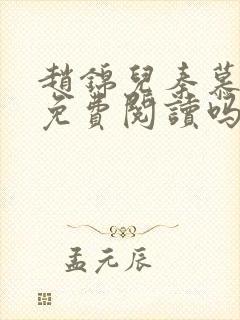 趙錦兒秦慕
免費閱讀嗎
孟元辰